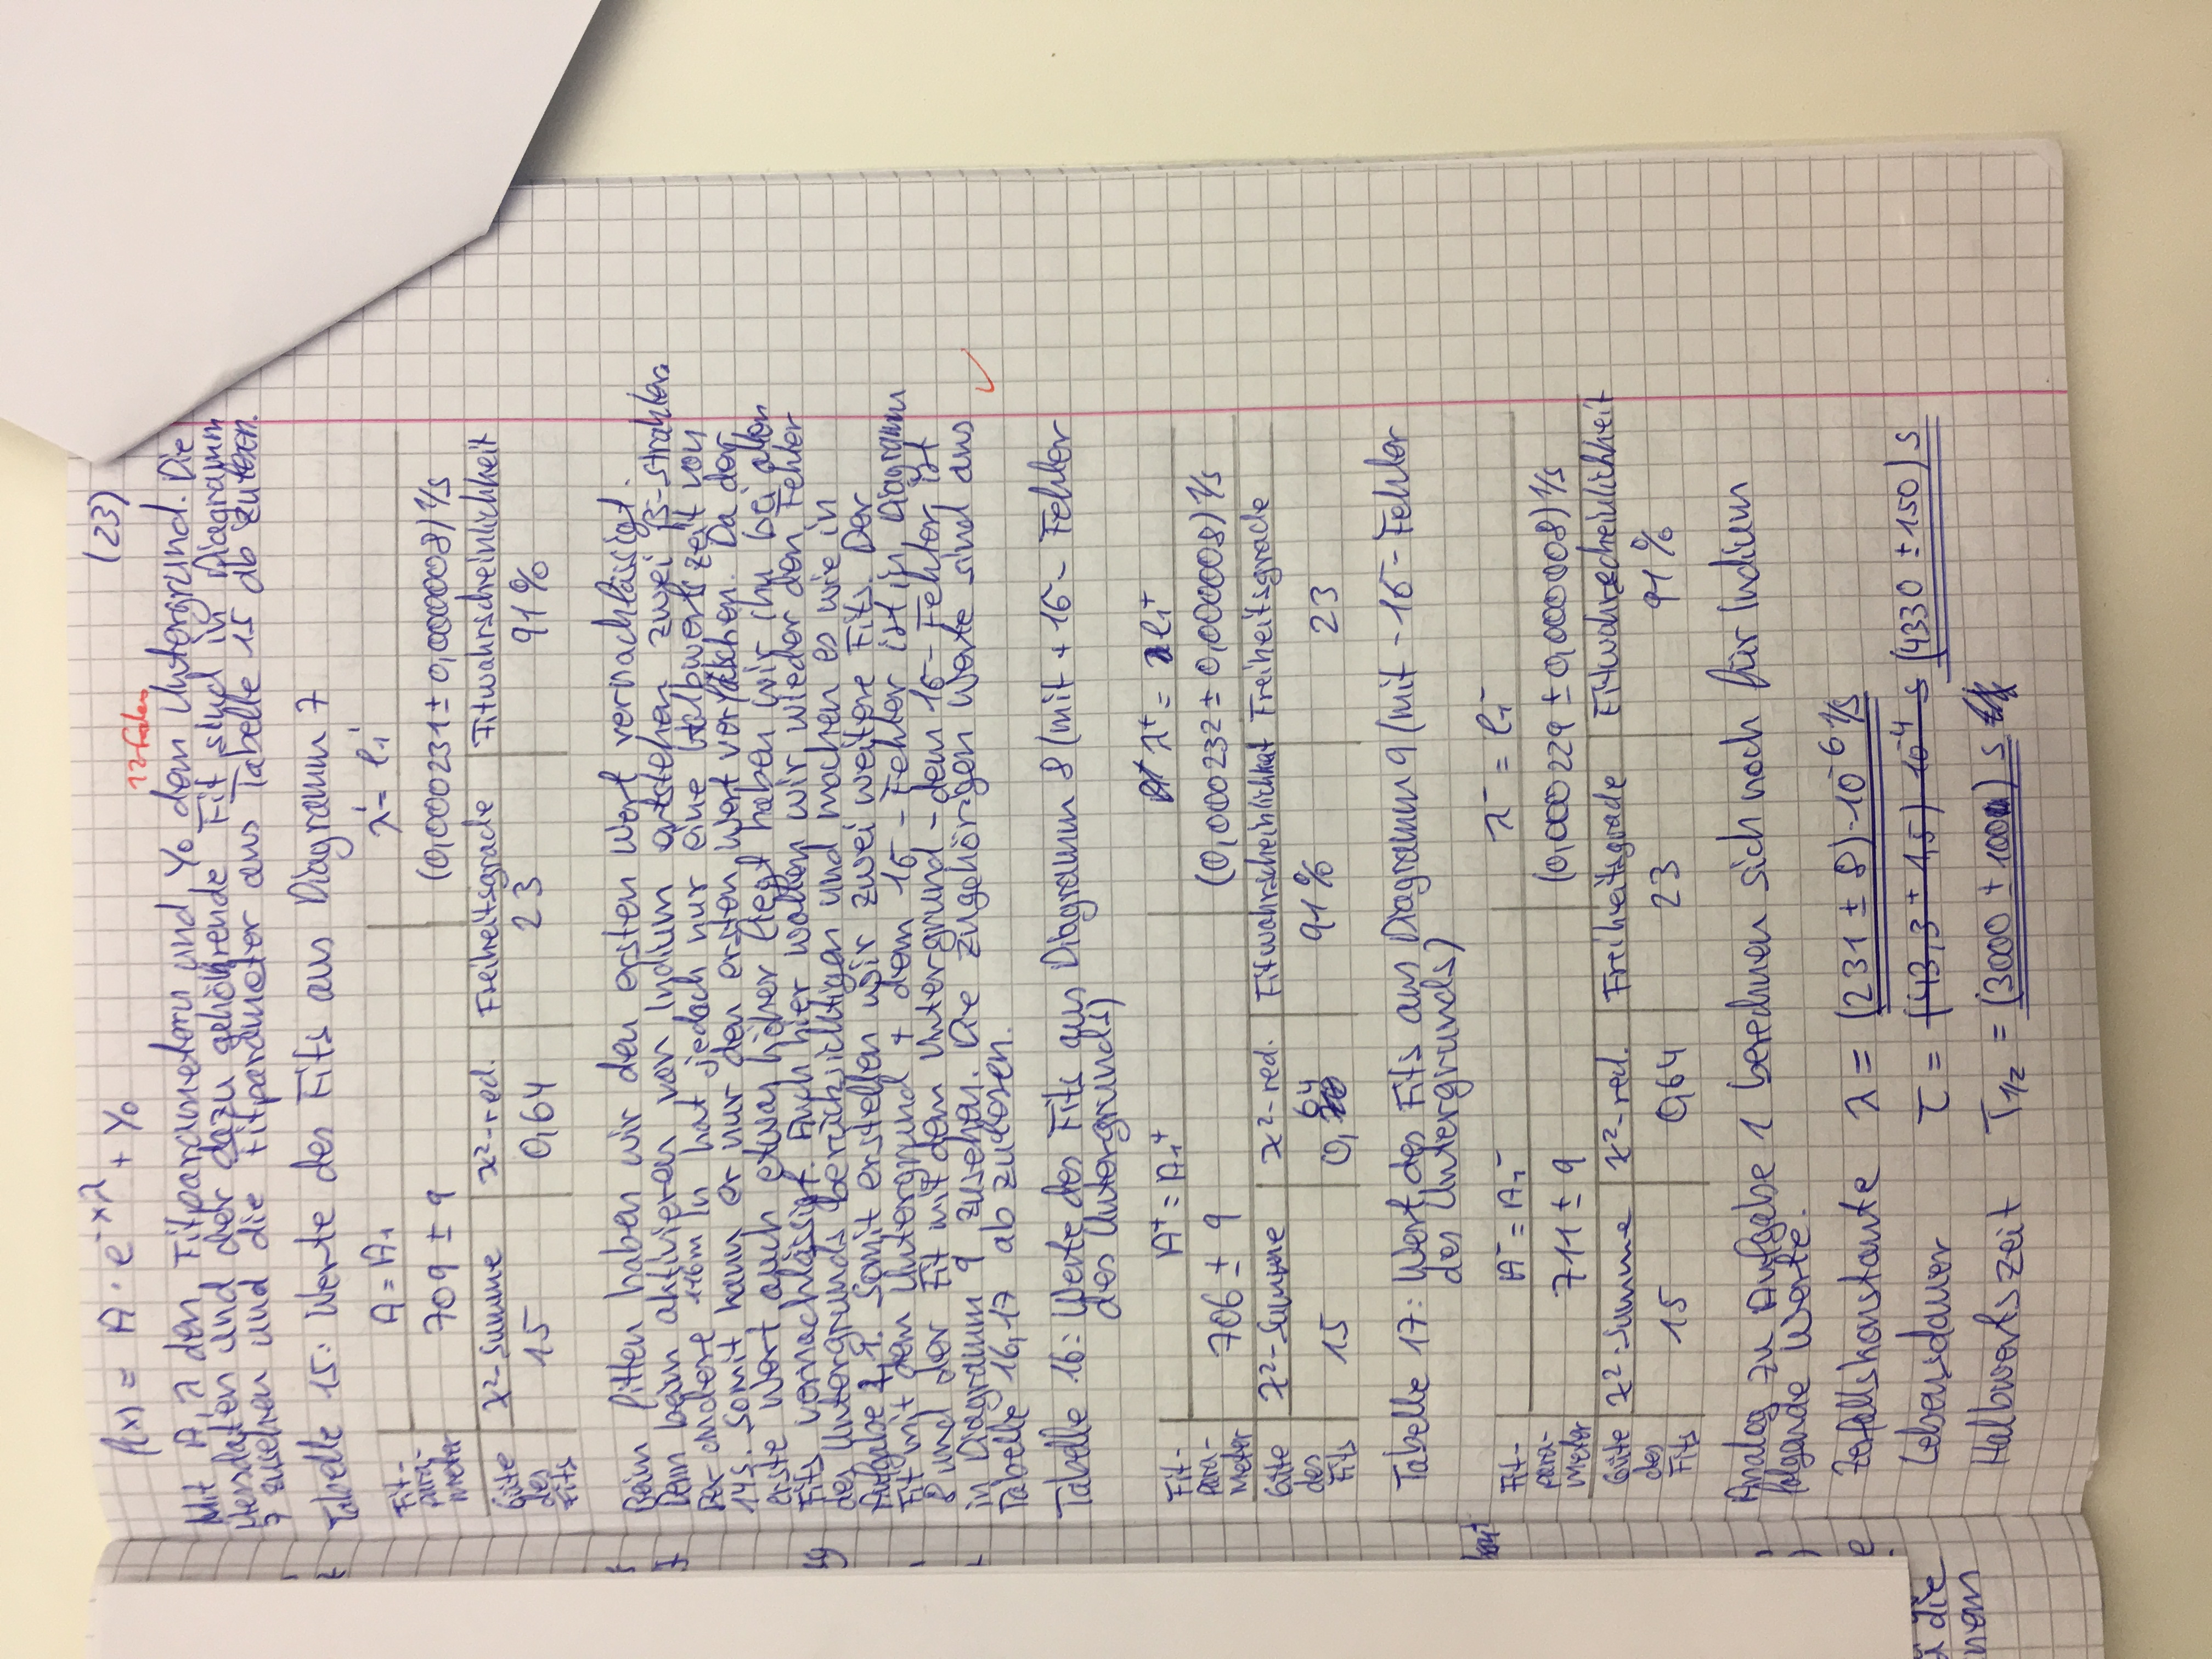 f(x) = A · e^-xλ + Y₀
(23)
12-faches
Mit A, λ den Fitparametern und Y₀ dem Untergrund. Die
Messdaten und der dazu gehöhrende Fit sind in Diagramm
7 zusehen und die Fitparameter aus Tabelle 15 ab zulesen.
Tabelle 15: Werte des Fits aus Diagramm 7
Fit-parameter A = A₁ λ' = l₁'
709 ± 9 (0,000231 ± 0,000008) 1/s
Güte des Fits χ²-Summe χ²-red. Freiheitsgrade Fitwahrscheinlichkeit
15 0,64 23 91%
Beim fitten haben wir den ersten Wert vernachlässigt.
Denn beim aktivieren von Indium entstehen zwei β-strahler.
Der andere 116m In hat jedoch nur eine Halbwertszeit von
14s. Somit kann er nur den ersten Wert verfälschen. Da der
erste Wert auch etwas höher liegt haben wir ihn bei allen
Fits vernachlässigt. Auch hier wollen wir wieder den Fehler
des Untergrunds berücksichtigen und machen es wie in
Aufgabe 1. Somit erstellen wir zwei weitere Fits. Der
Fit mit dem Untergrund + dem 1σ-Fehler ist in Diagramm
8 und der Fit mit dem Untergrund - dem 1σ-Fehler ist
in Diagramm 9 zusehen. Die zugehörigen Werte sind aus
Tabelle 16,17 ab zulesen.
Tabelle 16: Werte des Fits aus Diagramm 8 (mit + 1σ-Fehler
des Untergrunds)
Fit-Parameter A⁺ = A₁⁺ λ⁺ = l₁⁺
706 ± 9 (0,000232 ± 0,000008) 1/s
Güte des Fits χ²-Summe χ²-red. Fitwahrscheinlichkeit Freiheitsgrade
15 0,64 91% 23
Tabelle 17: Wert des Fits aus Diagramm 9 (mit - 1σ-Fehler
des Untergrunds)
Fit-parameter A⁻ = A₁⁻ λ⁻ = l₁⁻
711 ± 9 (0,000229 ± 0,000008) 1/s
Güte des Fits χ²-Summe χ²-red. Freiheitsgrade Fitwahrscheinlichkeit
15 0,64 23 91%
Analog zu Aufgabe 1 berechnen sich noch für Indium
folgende Werte.
Zerfallskonstante λ = (231 ± 8)·10⁻⁶ 1/s
Lebensdauer τ = (43,3 ± 1,5) 10⁻⁴ s (4330 ± 150) s
Halbwertszeit T1/2 = (3000 ± 100) s